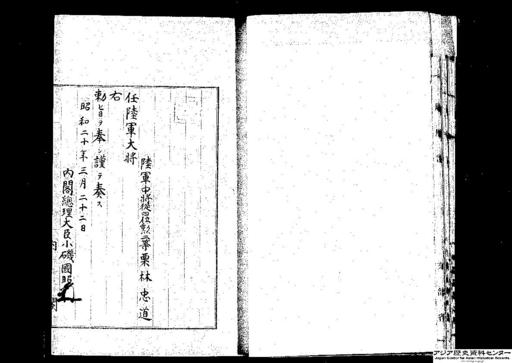 陸軍中将従四位勲二等栗林忠道
任陸軍大将
右
勅旨ヲ奉シ謹テ奏ス
昭和二十年三月二十二日
内閣總理大臣小磯國昭
内閣
アジア歴史資料センター
Japan Center for Asian Historical Records